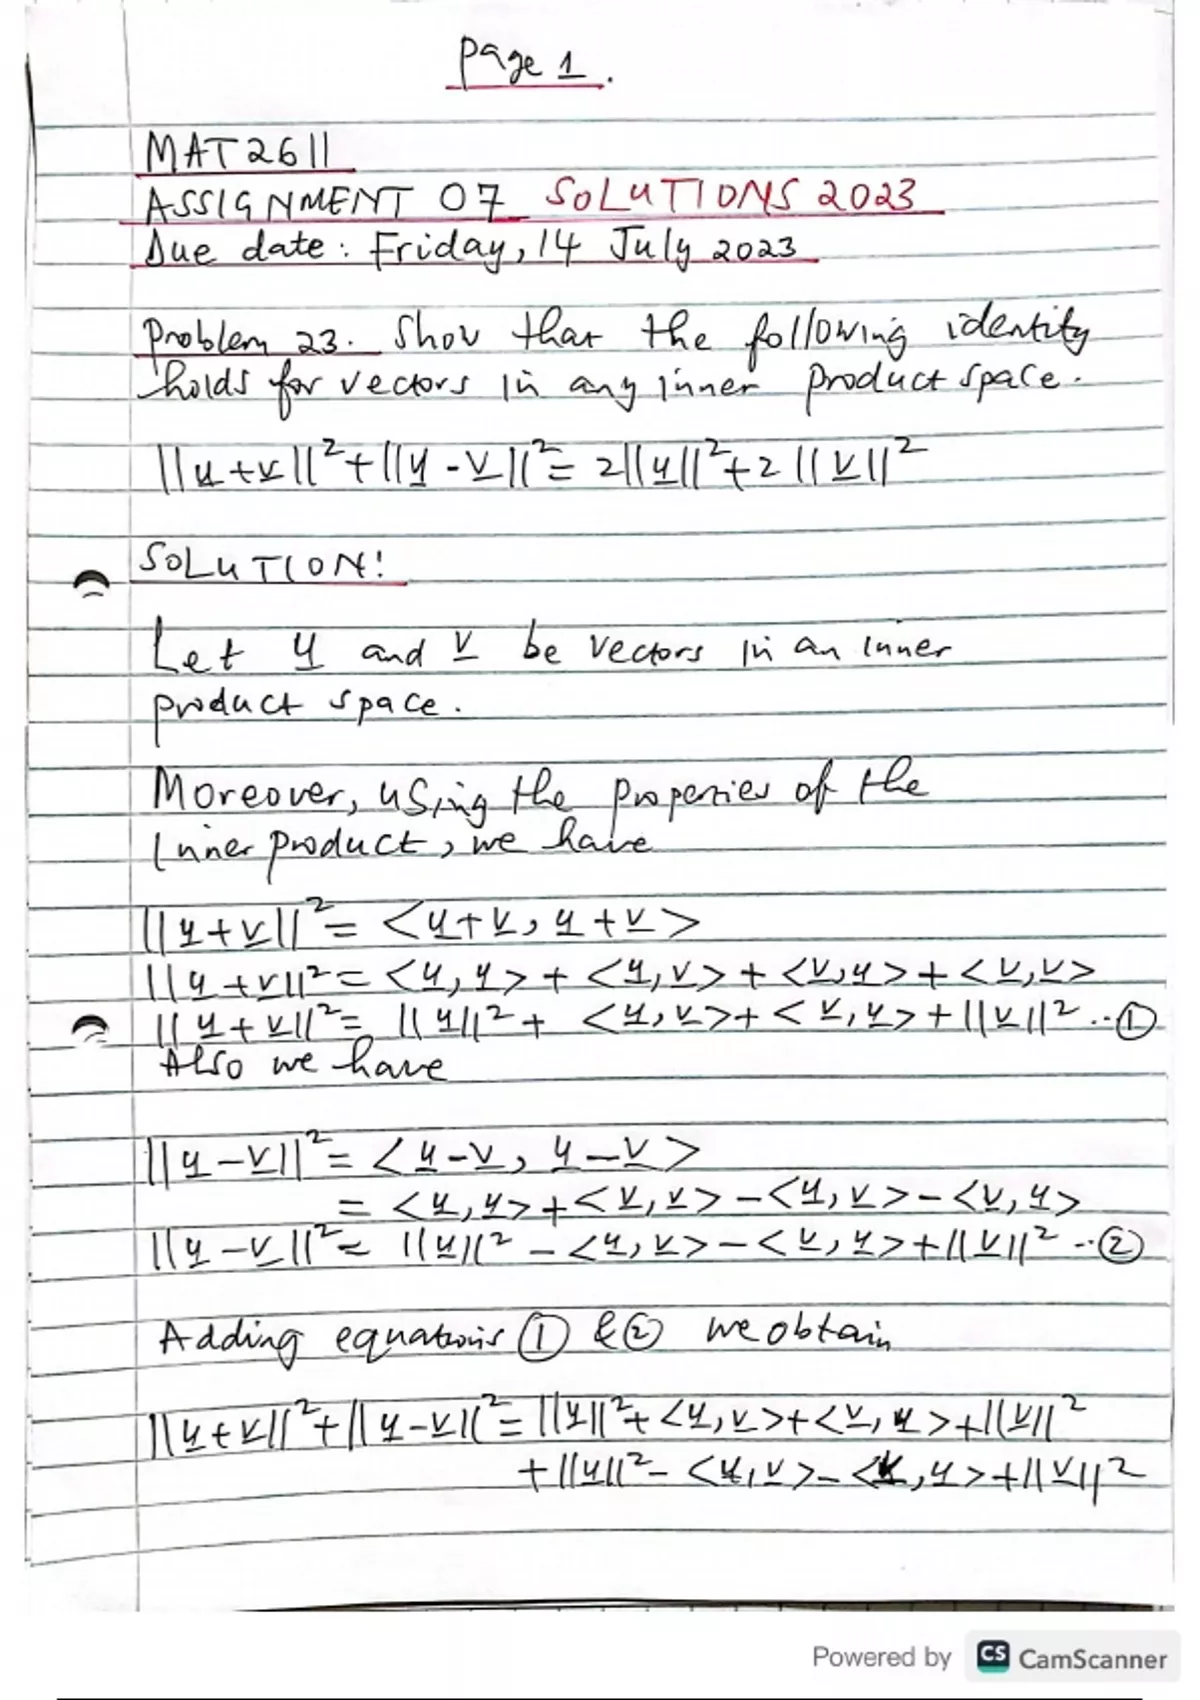 page 1.
MAT2611
ASSIGNMENT 07 SOLUTIONS 2023
Due date: Friday, 14 July 2023
Problem 23. Show that the following identity
holds for vectors in any inner product space.
||u̲+v̲||²+||u̲-v̲||²= 2||u̲||²+2||v̲||²
SOLUTION!
Let u̲ and v̲ be vectors in an inner
product space.
Moreover, using the properties of the
inner product, we have
||u̲+v̲||²= <u̲+v̲, u̲+v̲>
||u̲+v̲||²= <u̲,u̲>+<u̲,v̲>+<v̲,u̲>+<v̲,v̲>
||u̲+v̲||²= ||u̲||²+ <u̲,v̲>+<v̲,u̲>+||v̲||²..①
Also we have
||u̲-v̲||²= <u̲-v̲, u̲-v̲>
= <u̲,u̲>+<v̲,v̲>-<u̲,v̲>-<v̲,u̲>
||u̲-v̲||²= ||u̲||²-<u̲,v̲>-<v̲,u̲>+||v̲||²..②
Adding equations ① & ② we obtain
||u̲+v̲||²+||u̲-v̲||²=||u̲||²+<u̲,v̲>+<v̲,u̲>+||v̲||²
+||u̲||²-<u̲,v̲>-<v̲,u̲>+||v̲||²
Powered by CS CamScanner